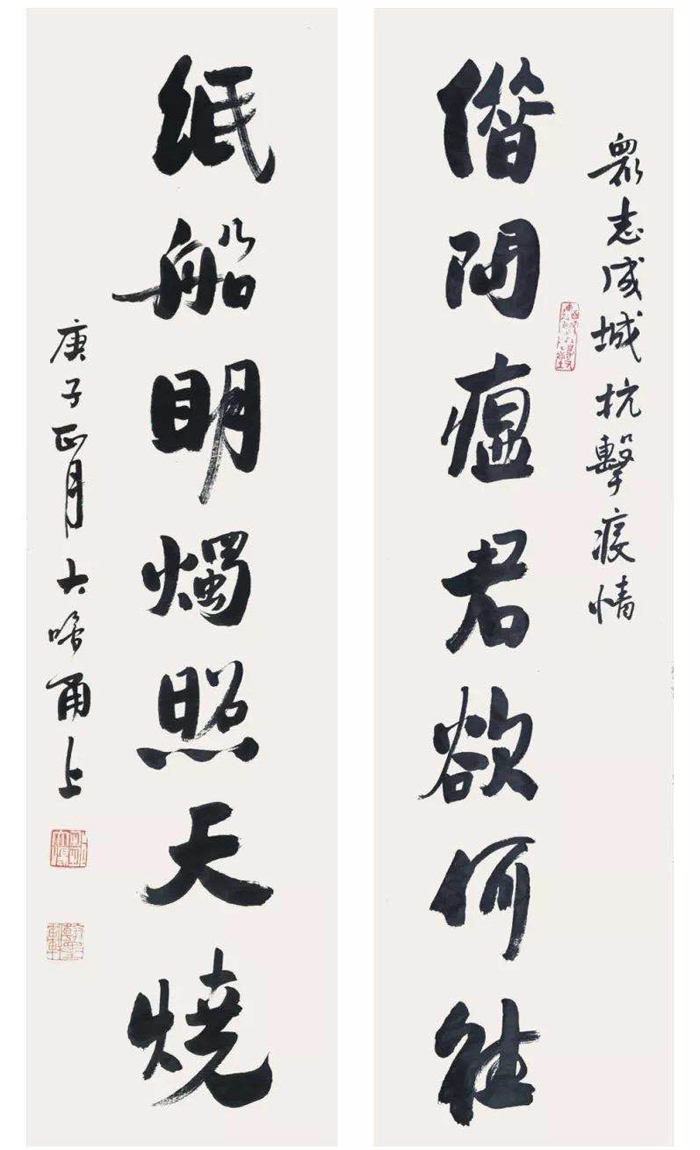 眾志成城抗擊疫情
借問瘟君欲何往
紙船明燭照天燒
庚子正月大甬上